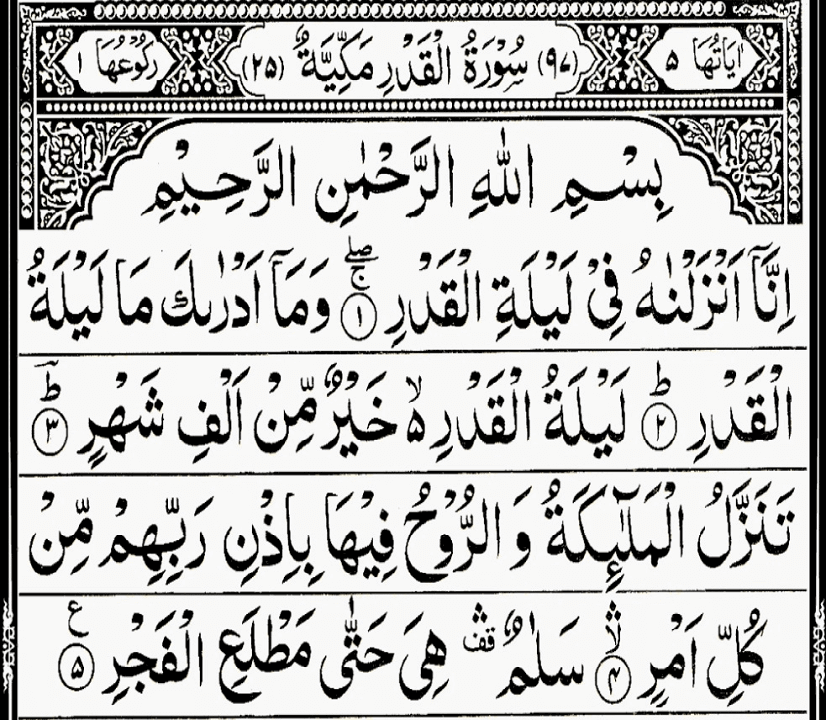 اٰيَاتُهَا ٥ (٩٧) سُوْرَةُ الْقَدْرِ مَكِّيَّةٌ (٢٥) رُكُوْعُهَا ١
بِسْمِ اللّٰهِ الرَّحْمٰنِ الرَّحِيْمِ
اِنَّاۤ اَنْزَلْنٰهُ فِيْ لَيْلَةِ الْقَدْرِ ۚۖ ١ وَمَاۤ اَدْرٰىكَ مَا لَيْلَةُ
الْقَدْرِ ؕ ٢ لَيْلَةُ الْقَدْرِ ۙ۬ خَيْرٌ مِّنْ اَلْفِ شَهْرٍ ؕ ٣
تَنَزَّلُ الْمَلٰٓئِكَةُ وَ الرُّوْحُ فِيْهَا بِاِذْنِ رَبِّهِمْ مِّنْ
كُلِّ اَمْرٍ ۛۙ ٤ سَلٰمٌ ۛ قف هِيَ حَتّٰى مَطْلَعِ الْفَجْرِ ع ٥